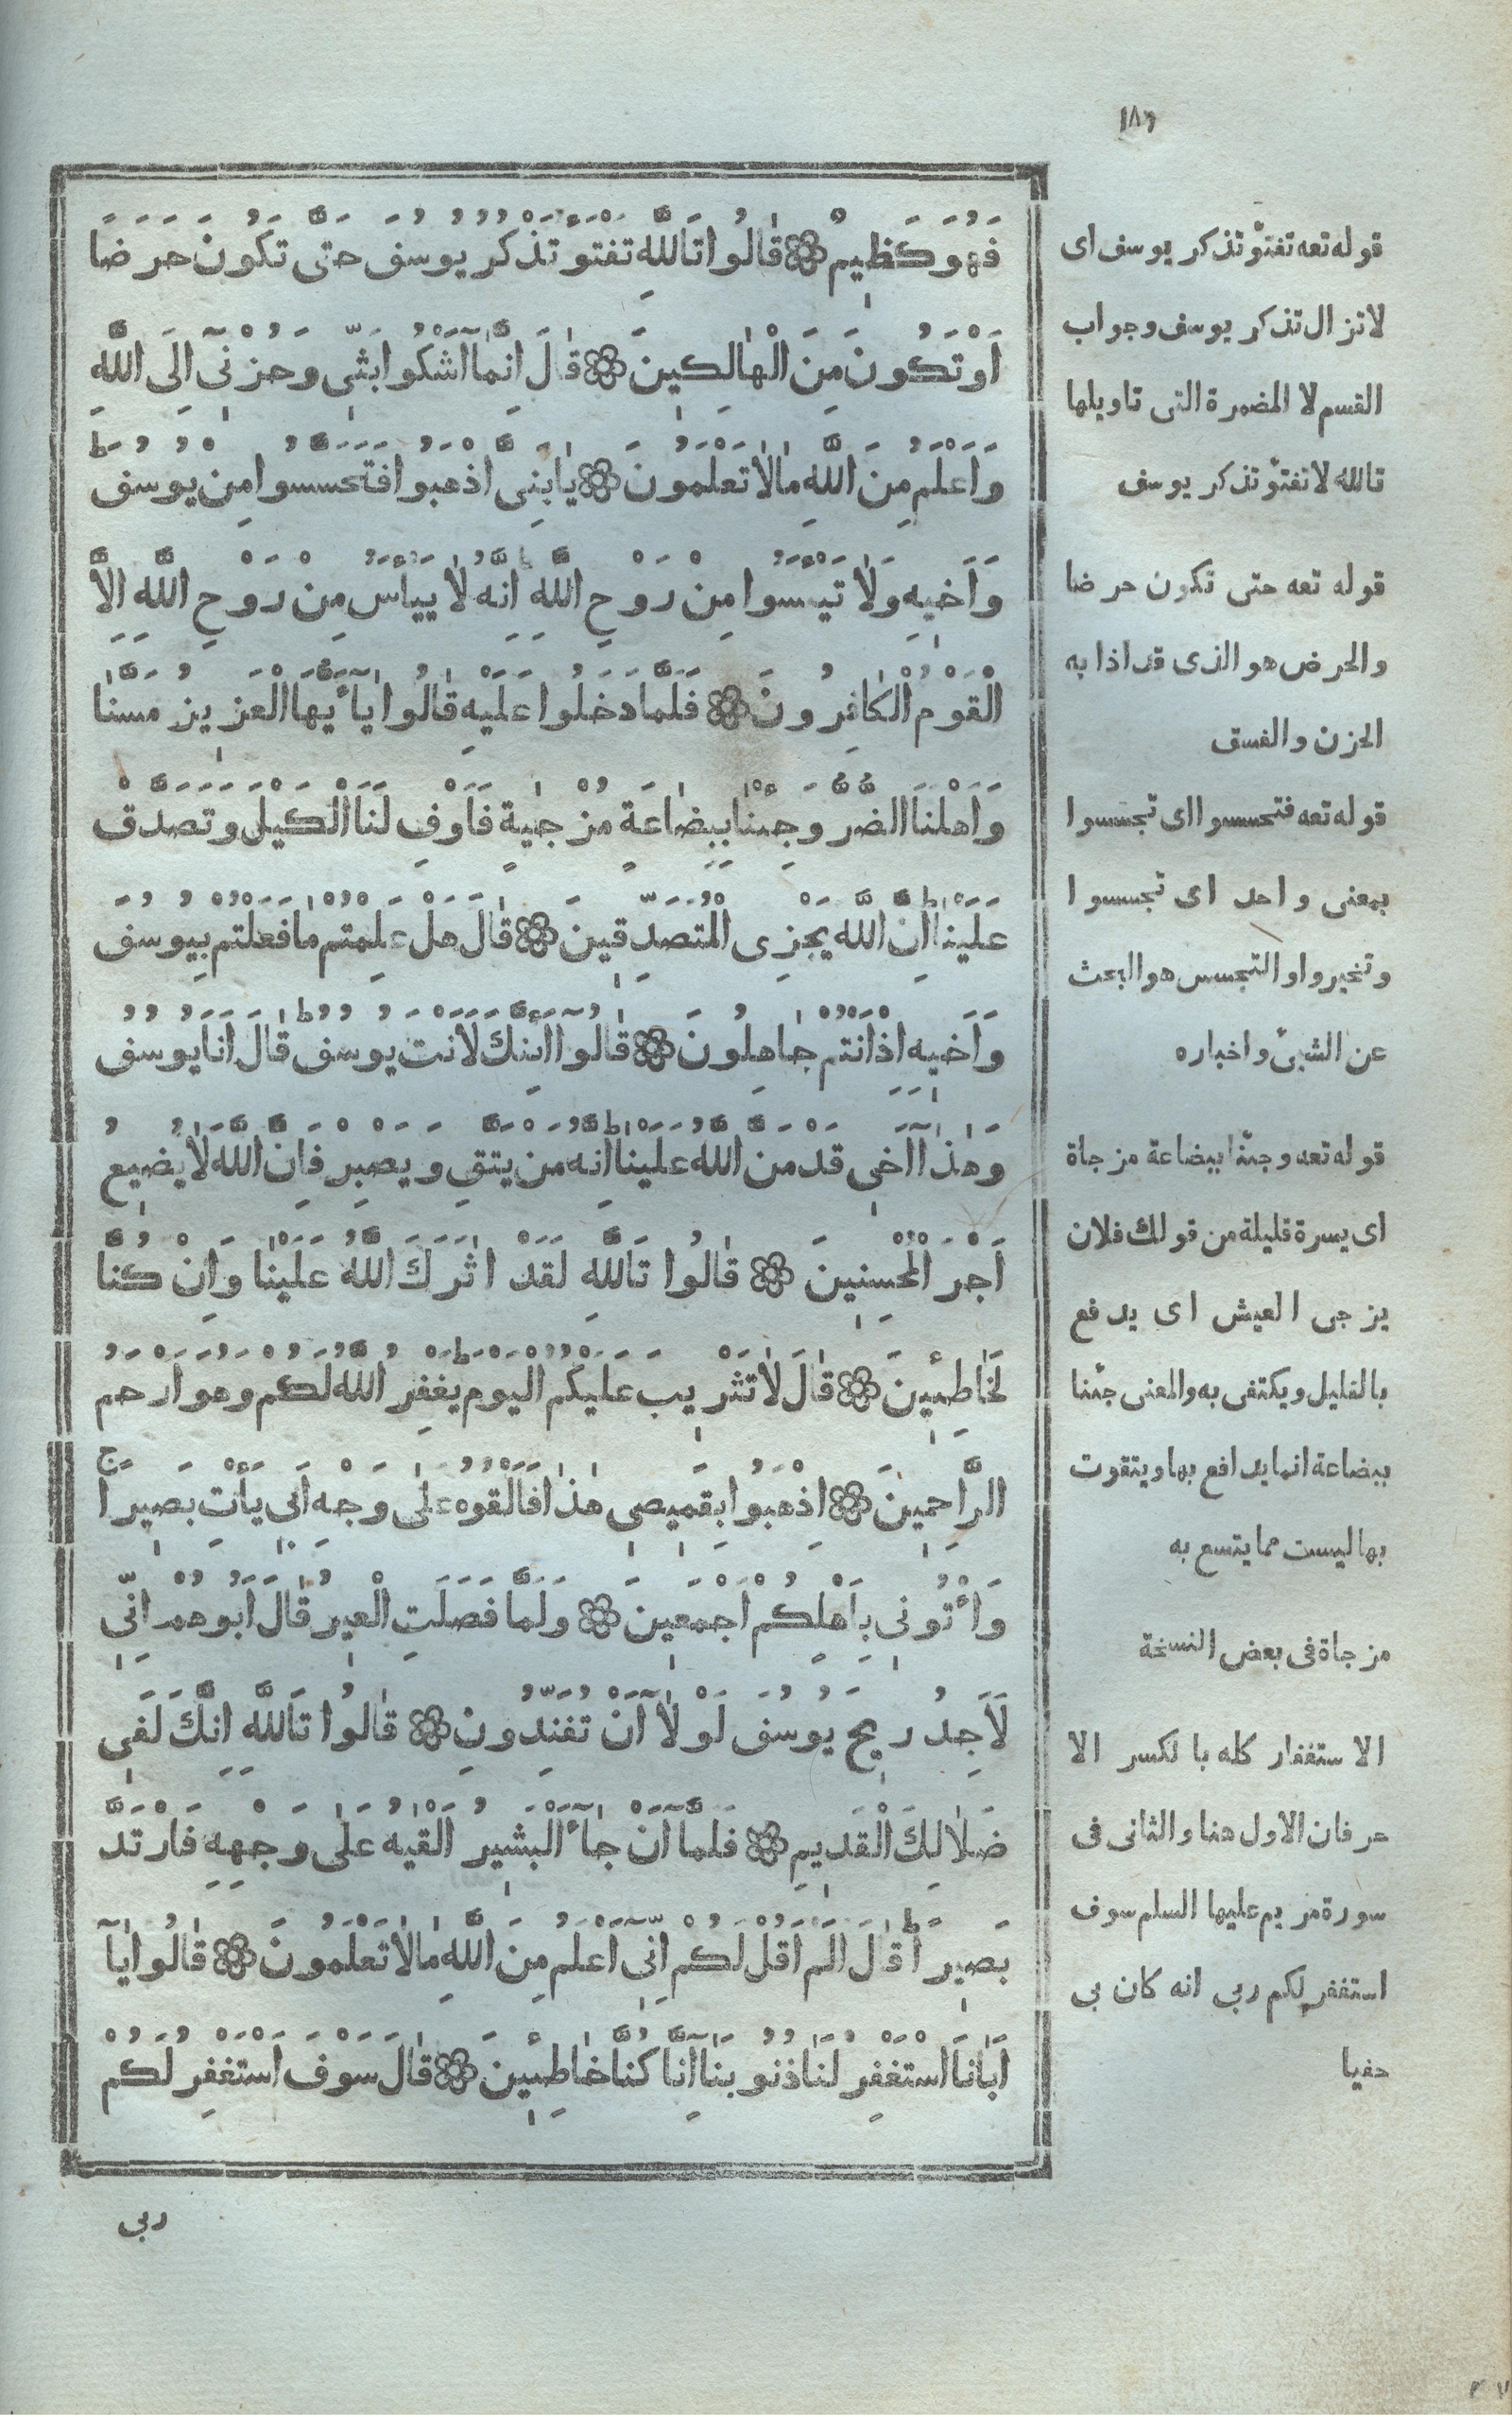 ١٨٦
فَهُوَ كَظِيمٌ ۞ قَالُوا تَاللَّهِ تَفْتَؤُ تَذْكُرُ يُوسُفَ حَتَّى تَكُونَ حَرَضًا
اَوْ تَكُونَ مِنَ الْهَالِكِينَ ۞ قَالَ اِنَّمَا اَشْكُوا بَثِّي وَحُزْنِي اِلَى اللَّهِ
وَاَعْلَمُ مِنَ اللَّهِ مَا لَا تَعْلَمُونَ ۞ يَا بَنِيَّ اذْهَبُوا فَتَحَسَّسُوا مِنْ يُوسُفَ ط
وَاَخِيهِ وَلَا تَيْئَسُوا مِنْ رَوْحِ اللَّهِ ط اِنَّهُ لَا يَيْاَسُ مِنْ رَوْحِ اللَّهِ اِلَّا
الْقَوْمُ الْكَافِرُونَ ۞ فَلَمَّا دَخَلُوا عَلَيْهِ قَالُوا يَآ اَيُّهَا الْعَزِيزُ مَسَّنَا
وَاَهْلَنَا الضُّرُّ وَجِئْنَا بِبِضَاعَةٍ مُزْجٰيةٍ فَاَوْفِ لَنَا الْكَيْلَ وَتَصَدَّقْ
عَلَيْنَا ط اِنَّ اللَّهَ يَجْزِي الْمُتَصَدِّقِينَ ۞ قَالَ هَلْ عَلِمْتُمْ مَا فَعَلْتُمْ بِيُوسُفَ
وَاَخِيهِ اِذْ اَنْتُمْ جَاهِلُونَ ۞ قَالُوآ اَئِنَّكَ لَاَنْتَ يُوسُفُ ط قَالَ اَنَا يُوسُفُ
وَهٰذَآ اَخِي قَدْ مَنَّ اللَّهُ عَلَيْنَا ط اِنَّهُ مَنْ يَتَّقِ وَيَصْبِرْ فَاِنَّ اللَّهَ لَا يُضِيعُ
اَجْرَ الْمُحْسِنِينَ ۞ قَالُوا تَاللَّهِ لَقَدْ اٰثَرَكَ اللَّهُ عَلَيْنَا وَاِنْ كُنَّا
لَخَاطِئِينَ ۞ قَالَ لَا تَثْرِيبَ عَلَيْكُمُ الْيَوْمَ ط يَغْفِرُ اللَّهُ لَكُمْ وَهُوَ اَرْحَمُ
الرَّاحِمِينَ ۞ اذْهَبُوا بِقَمِيصِي هٰذَا فَاَلْقُوهُ عَلٰى وَجْهِ اَبِي يَأْتِ بَصِيرًا ج
وَأْتُونِي بِاَهْلِكُمْ اَجْمَعِينَ ۞ وَلَمَّا فَصَلَتِ الْعِيرُ قَالَ اَبُوهُمْ اِنِّي
لَاَجِدُ رِيحَ يُوسُفَ لَوْ لَآ اَنْ تُفَنِّدُونِ ۞ قَالُوا تَاللَّهِ اِنَّكَ لَفِي
ضَلَالِكَ الْقَدِيمِ ۞ فَلَمَّآ اَنْ جَآءَ الْبَشِيرُ اَلْقٰيهُ عَلٰى وَجْهِهِ فَارْتَدَّ
بَصِيرًا ط قَالَ اَلَمْ اَقُلْ لَكُمْ اِنِّي اَعْلَمُ مِنَ اللَّهِ مَا لَا تَعْلَمُونَ ۞ قَالُوا يَآ
اَبَانَا اسْتَغْفِرْ لَنَا ذُنُوبَنَآ اِنَّا كُنَّا خَاطِئِينَ ۞ قَالَ سَوْفَ اَسْتَغْفِرُ لَكُمْ
ربى
قوله تعه تفتؤ تذكر يوسف اى
لا تزال تذكر يوسف وجواب
القسم لا المضمرة التى تاويلها
تالله لا تفتؤ تذكر يوسف
قوله تعه حتى تكون حرضا
والحرض هو الذى قد اذا به
الحزن والفسق
قوله تعه فتحسسوا اى تجسسوا
بمعنى واحد اى تجسسوا
وتخيروا والتجسس هو البحث
عن الشىء واخباره
قوله تعه وجئنا ببضاعة مزجاة
اى يسرة قليلة من قولك فلان
يزجى العيش اى يدفع
بالقليل ويكتفى به والمعنى جئنا
ببضاعة انما يدافع بها ويتقوت
بها ليست مما يتسع به
مزجاة فى بعض النسخة
الاستغفار كله بالكسر الا
حرفان الاول هنا والثانى فى
سورة مريم عليها السلم سوف
استغفر لكم ربى انه كان بى
حفيا